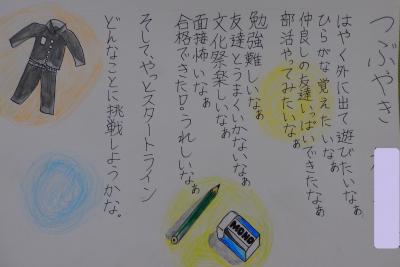 つぶやき
はやく外に出て遊びたいなぁ
ひらがな覚えたいなぁ
仲良しの友達いっぱいできたなぁ
部活やってみたいなぁ
勉強難しいなぁ
友達とうまくいかないなぁ
文化祭楽しいなぁ
面接怖いなぁ
合格できた!!うれしいなぁ
そして、やっとスタートライン
どんなことに挑戦しようかな。
MONO